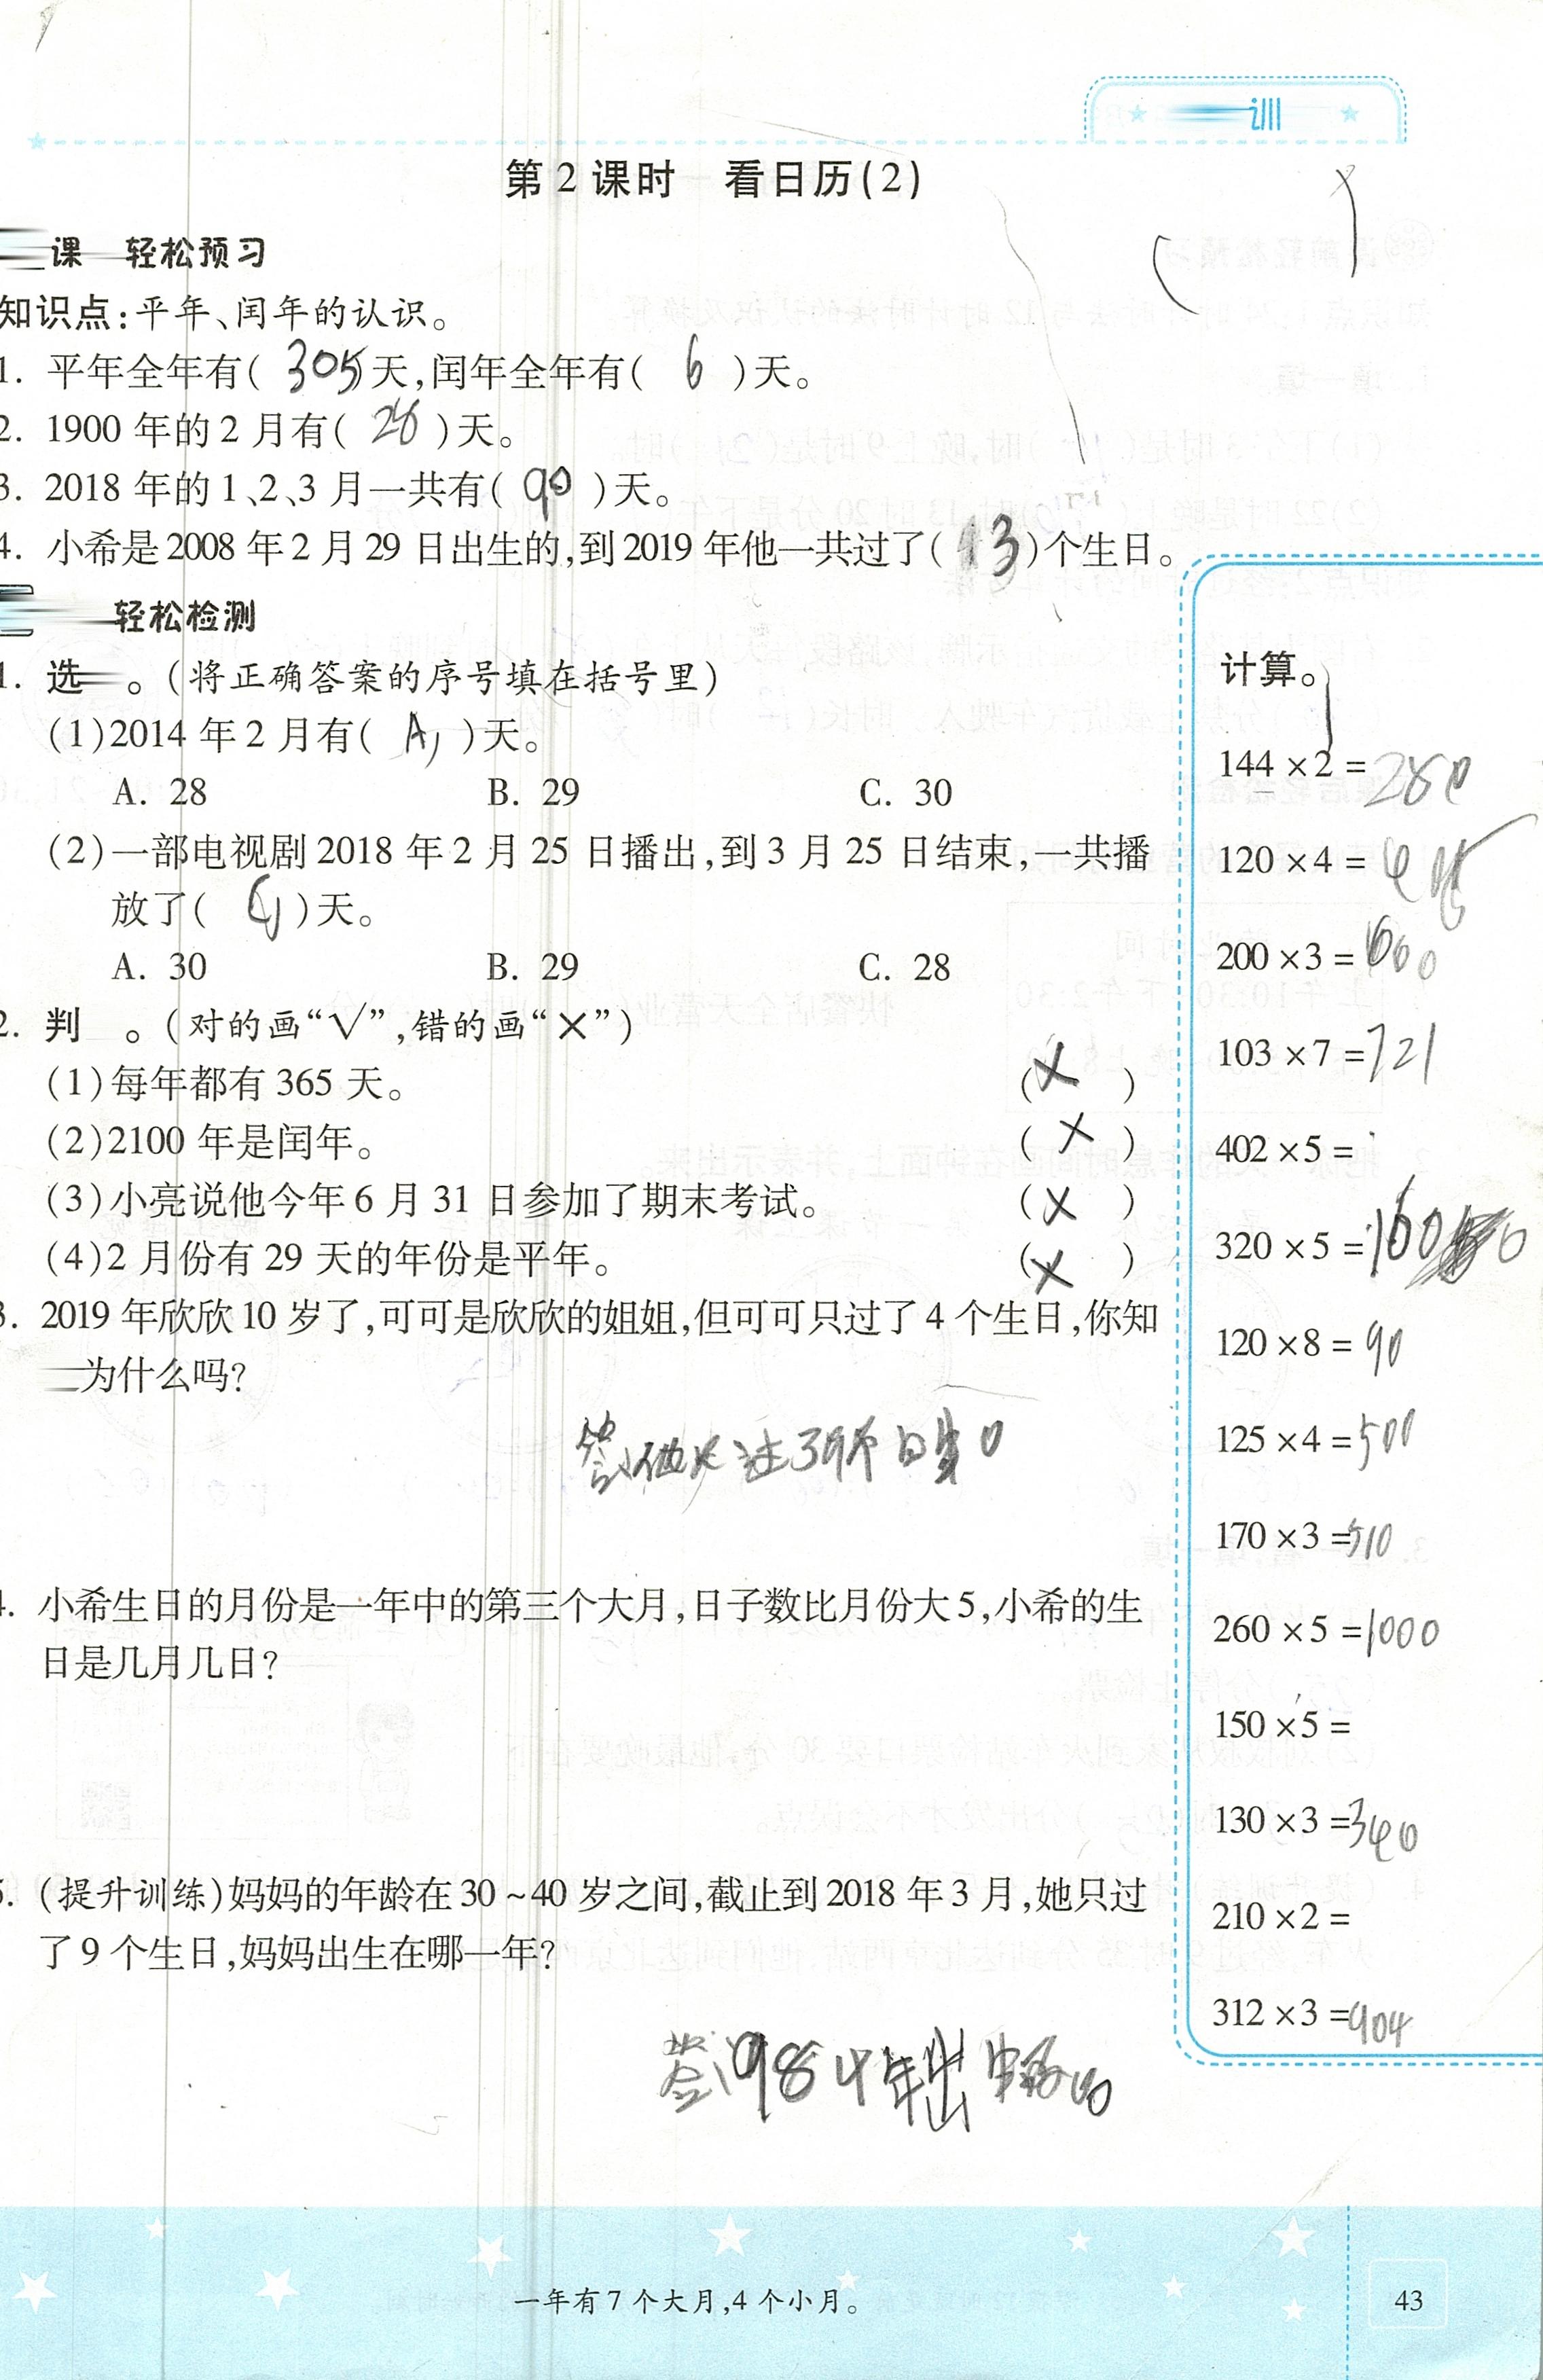 训
第2课时 看日历(2)
课 轻松预习
知识点:平年、闰年的认识。
1. 平年全年有( 305)天,闰年全年有( 6 )天。
2. 1900年的2月有( 28 )天。
3. 2018年的1、2、3月一共有( 90 )天。
4. 小希是2008年2月29日出生的,到2019年他一共过了( 13 )个生日。
轻松检测
1. 选 。(将正确答案的序号填在括号里)
(1)2014年2月有( A )天。
A. 28 B. 29 C. 30
(2)一部电视剧2018年2月25日播出,到3月25日结束,一共播
放了( )天。
A. 30 B. 29 C. 28
2. 判 。(对的画“√”,错的画“×”)
(1)每年都有365天。 (× )
(2)2100年是闰年。 ( × )
(3)小亮说他今年6月31日参加了期末考试。 (× )
(4)2月份有29天的年份是平年。 (× )
3. 2019年欣欣10岁了,可可是欣欣的姐姐,但可可只过了4个生日,你知
为什么吗?
4. 小希生日的月份是一年中的第三个大月,日子数比月份大5,小希的生
日是几月几日?
5. (提升训练)妈妈的年龄在30~40岁之间,截止到2018年3月,她只过
了9个生日,妈妈出生在哪一年?
答1984年出生
计算。
144×2=280
120×4=
200×3=600
103×7=721
402×5=
320×5=160 0
120×8=90
125×4=500
170×3=510
260×5=1000
150×5=
130×3=340
210×2=
312×3=904
一年有7个大月,4个小月。
43